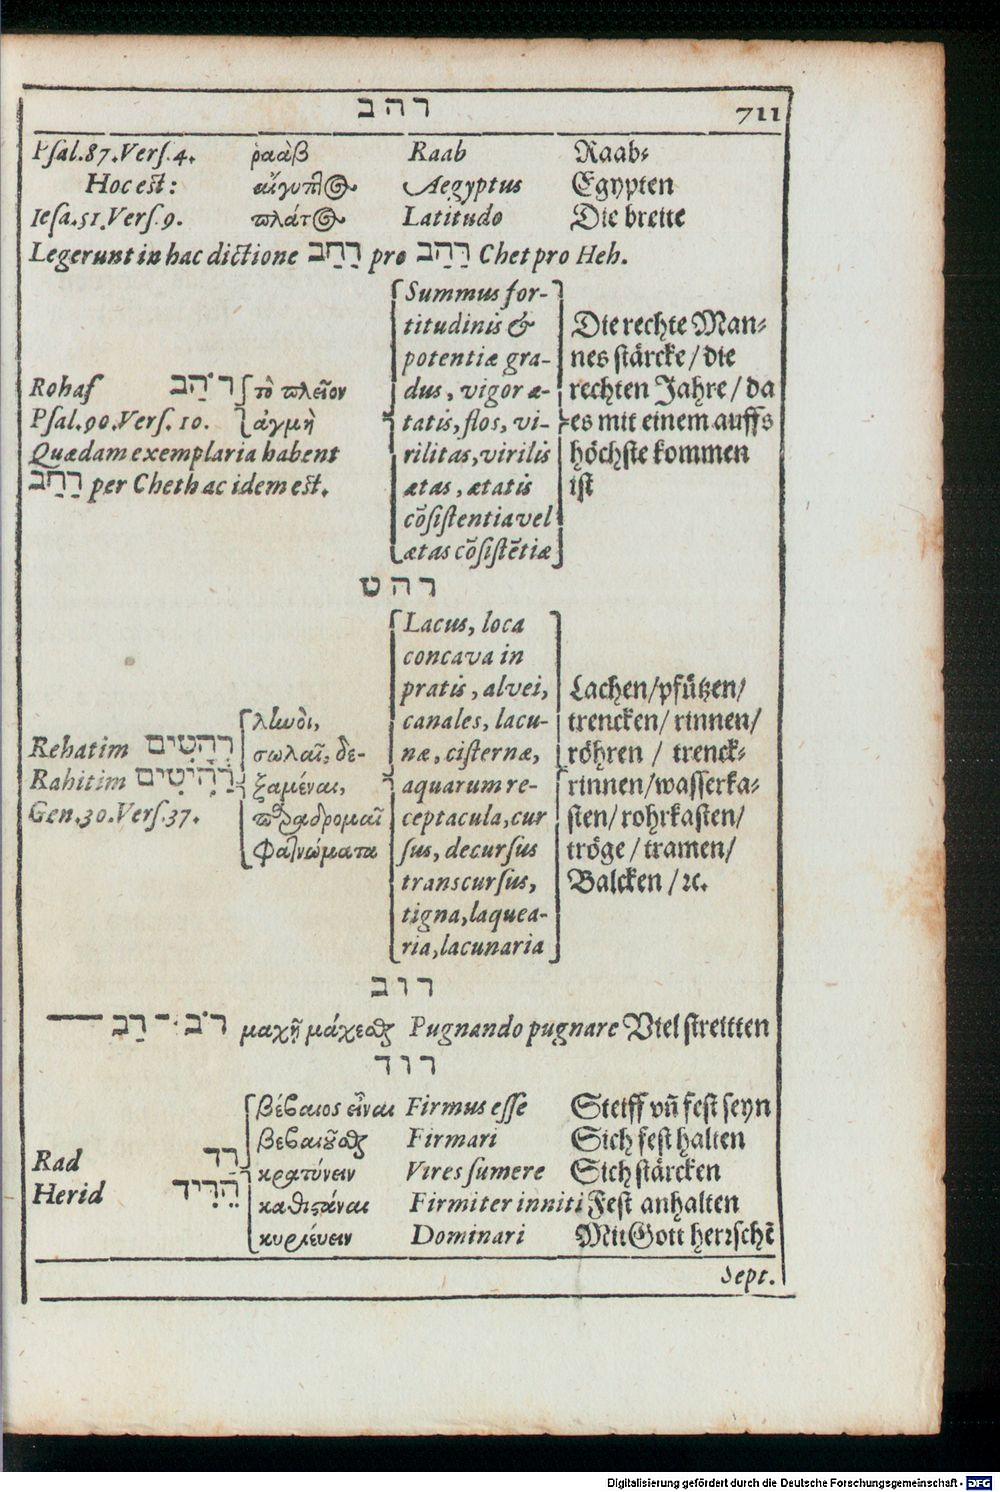 רהב 711
Psal.87.Vers.4. ῥαὰβ Raab Raab⸗
Hoc est: αἴγυπτος Aegyptus Egypten
Iesa.51.Vers.9. πλάτος Latitudo Die breite
Legerunt in hac dictione רַחַב pro רַהַב Chet pro Heh.
Summus for-
titudinis & Die rechte Man⸗
potentiæ gra- nes stärcke / die
Rohaf רֹהַב τὸ πλεῖον dus, vigor æ- rechten Jahre / da
Psal.90.Vers.10. ἀγμὴ tatis, flos, vi- es mit einem auffs
Quædam exemplaria habent rilitas, virilis höchste kommen
רַחַב per Cheth ac idem est. ætas, ætatis ist
cõsistentia vel
ætas cõsistẽtiæ
רהט
Lacus, loca
concava in
pratis, alvei, Lachen/pfützen/
ληνοὶ, canales, lacu- trencken/ rinnen/
Rehatim רְהָטִים σωλαῖ, δε- næ, cisternæ, röhren / trenck⸗
Rahitim רַהִיטִים ξαμέναι, aquarum re- rinnen/wasserka⸗
Gen.30.Vers.37. παραδρομαῖ ceptacula, cur sten/ rohrkasten/
Φατνώματα sus, decursus tröge / tramen/
transcursus, Balcken / ꝛc.
tigna, laquea-
ria, lacunaria
רוב
רֹב־רַב μαχῇ μάχεσθαι Pugnando pugnare Viel streitten
רוד
βέβαιος εἶναι Firmus esse Steiff vñ fest seyn
βεβαιοῦσθαι Firmari Sich fest halten
Rad רַד κρατύνειν Vires sumere Sich stärcken
Herid הֵרִיד καθιστάναι Firmiter inniti Fest anhalten
κυριέυειν Dominari Mit Gott herrschẽ
Sept.
Digitalisierung gefördert durch die Deutsche Forschungsgemeinschaft - DFG